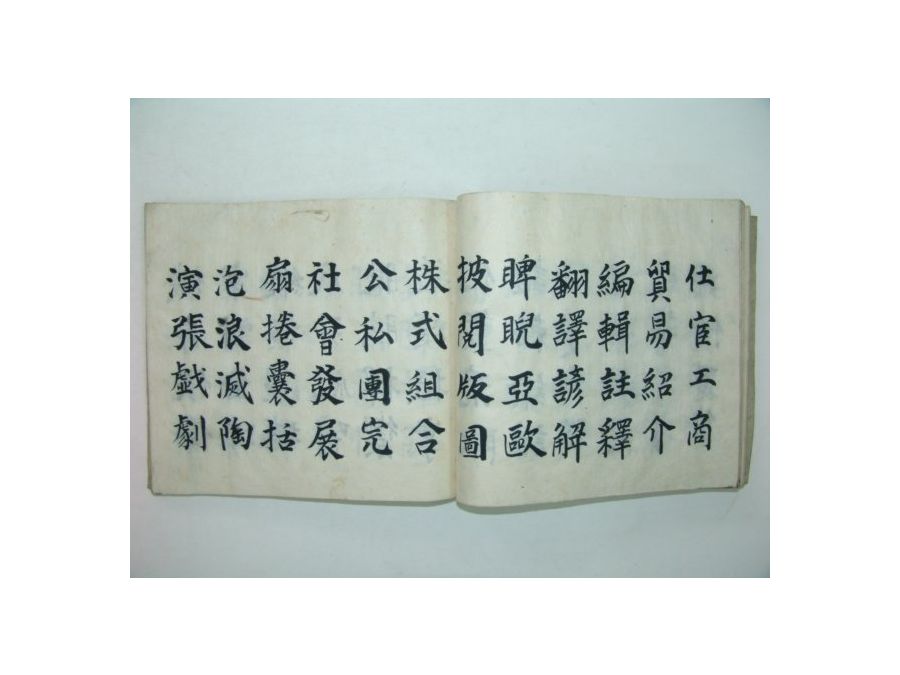 仕宦工商
貿易紹介
編輯註釋
翻譯諺解
睥睨亞歐
披閱版圖
株式組合
公私團完
社會發展
扇捲囊括
泡浪滅陶
演張戱劇